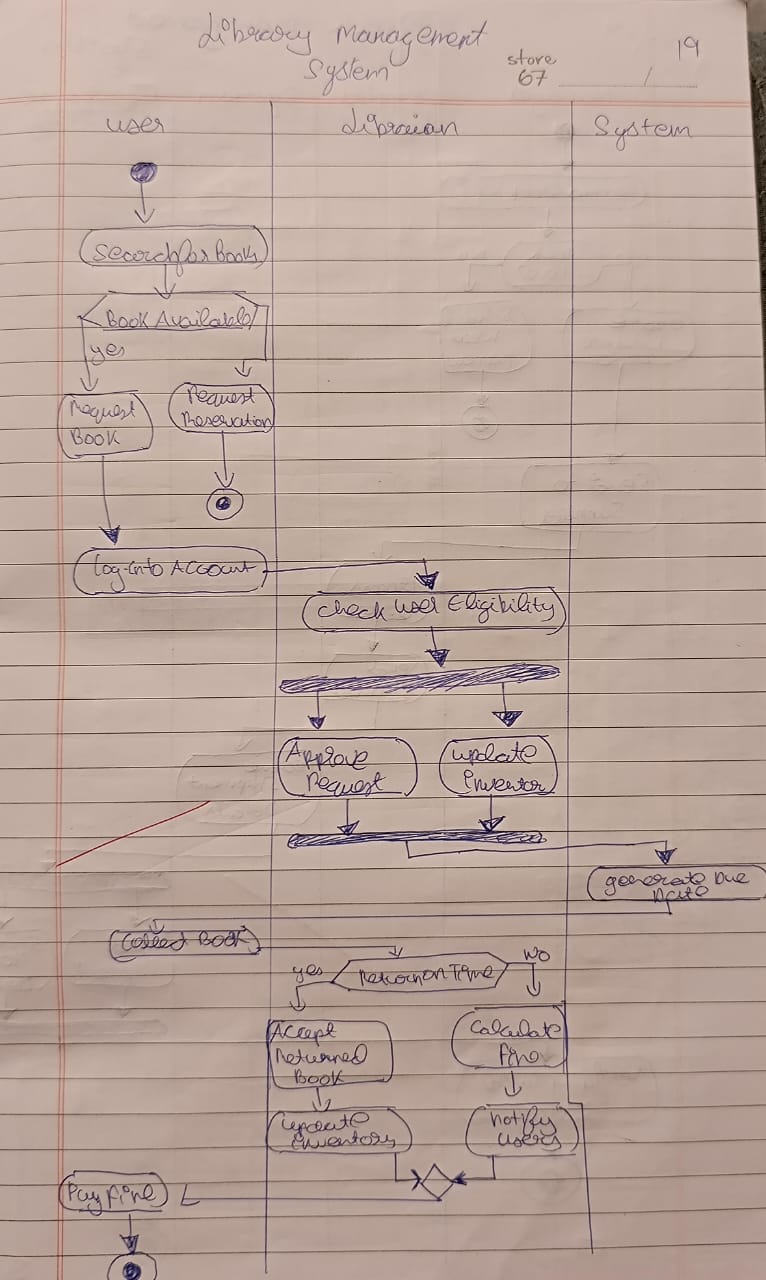 Library Management
System
store
67
19
User
Libraian
System
Search for Books
Book Available
yes
Request
Book
Request
Reservation
Log-into Account
Check User Eligibility
Approve
Request
Update
Inventor
generate Due
Date
Collect Book
yes
Return on Time
No
Accept
Returned
Book
Calculate
Fine
update
Inventory
notify
users
Pay fine